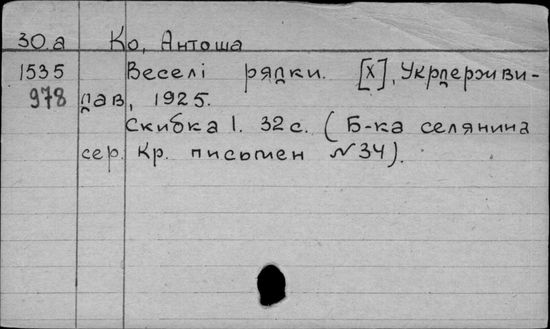 30.а Ко, Антоша
1535 Веселі рядки. [Х], Укрдержви-
978 дав, 1925.
Скибка 1. 32 с. (Б-ка селянина
сер. Кр. письмен №34).